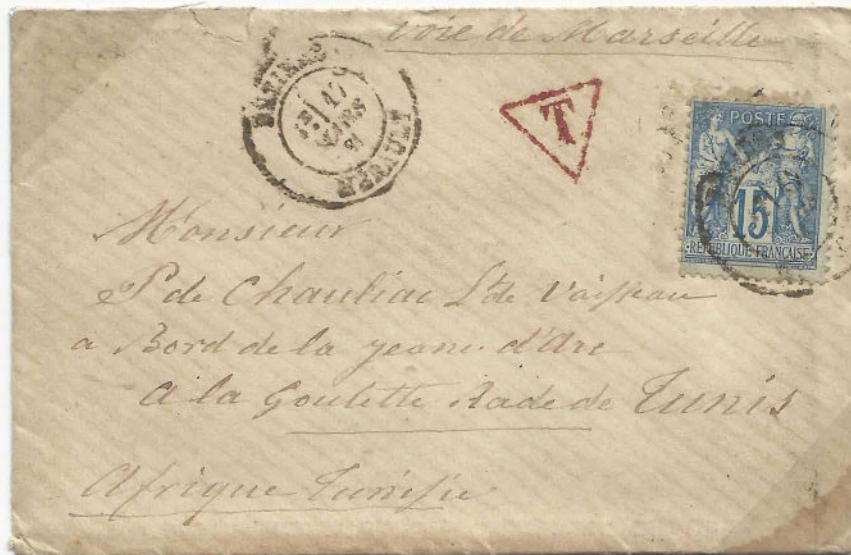 voie de Marseille
HERAULT
MARS
T
POSTE
15
REPUBLIQUE FRANÇAISE
Monsieur
P de Chauliac Lt de Vaisseau
a Bord de la jeanne d'Arc
a la Goulette Rade de Tunis
Afrique Tunisie